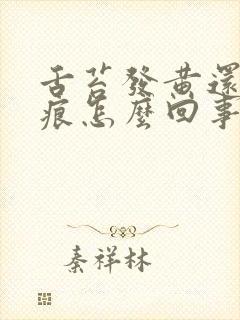 舌苔發黃還
痕怎麼回事
秦祥林